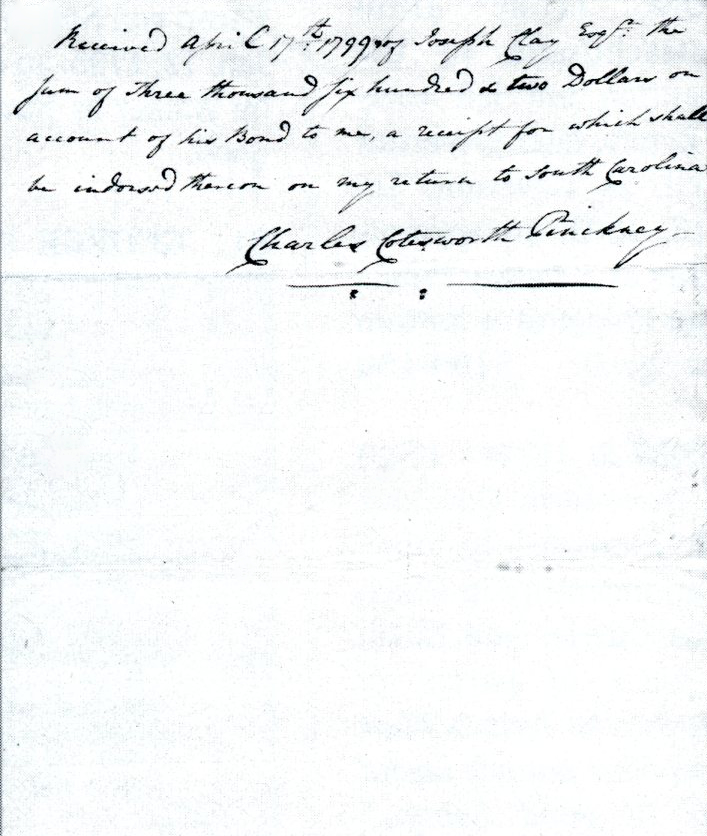 Received April 17th. 1799 of Joseph Clay Esqr. the
sum of three thousand six hundred & two Dollars on
account of his Bond to me, a receipt for which shall
be indorsed thereon on my return to South Carolina
Charles Cotesworth Pinckney